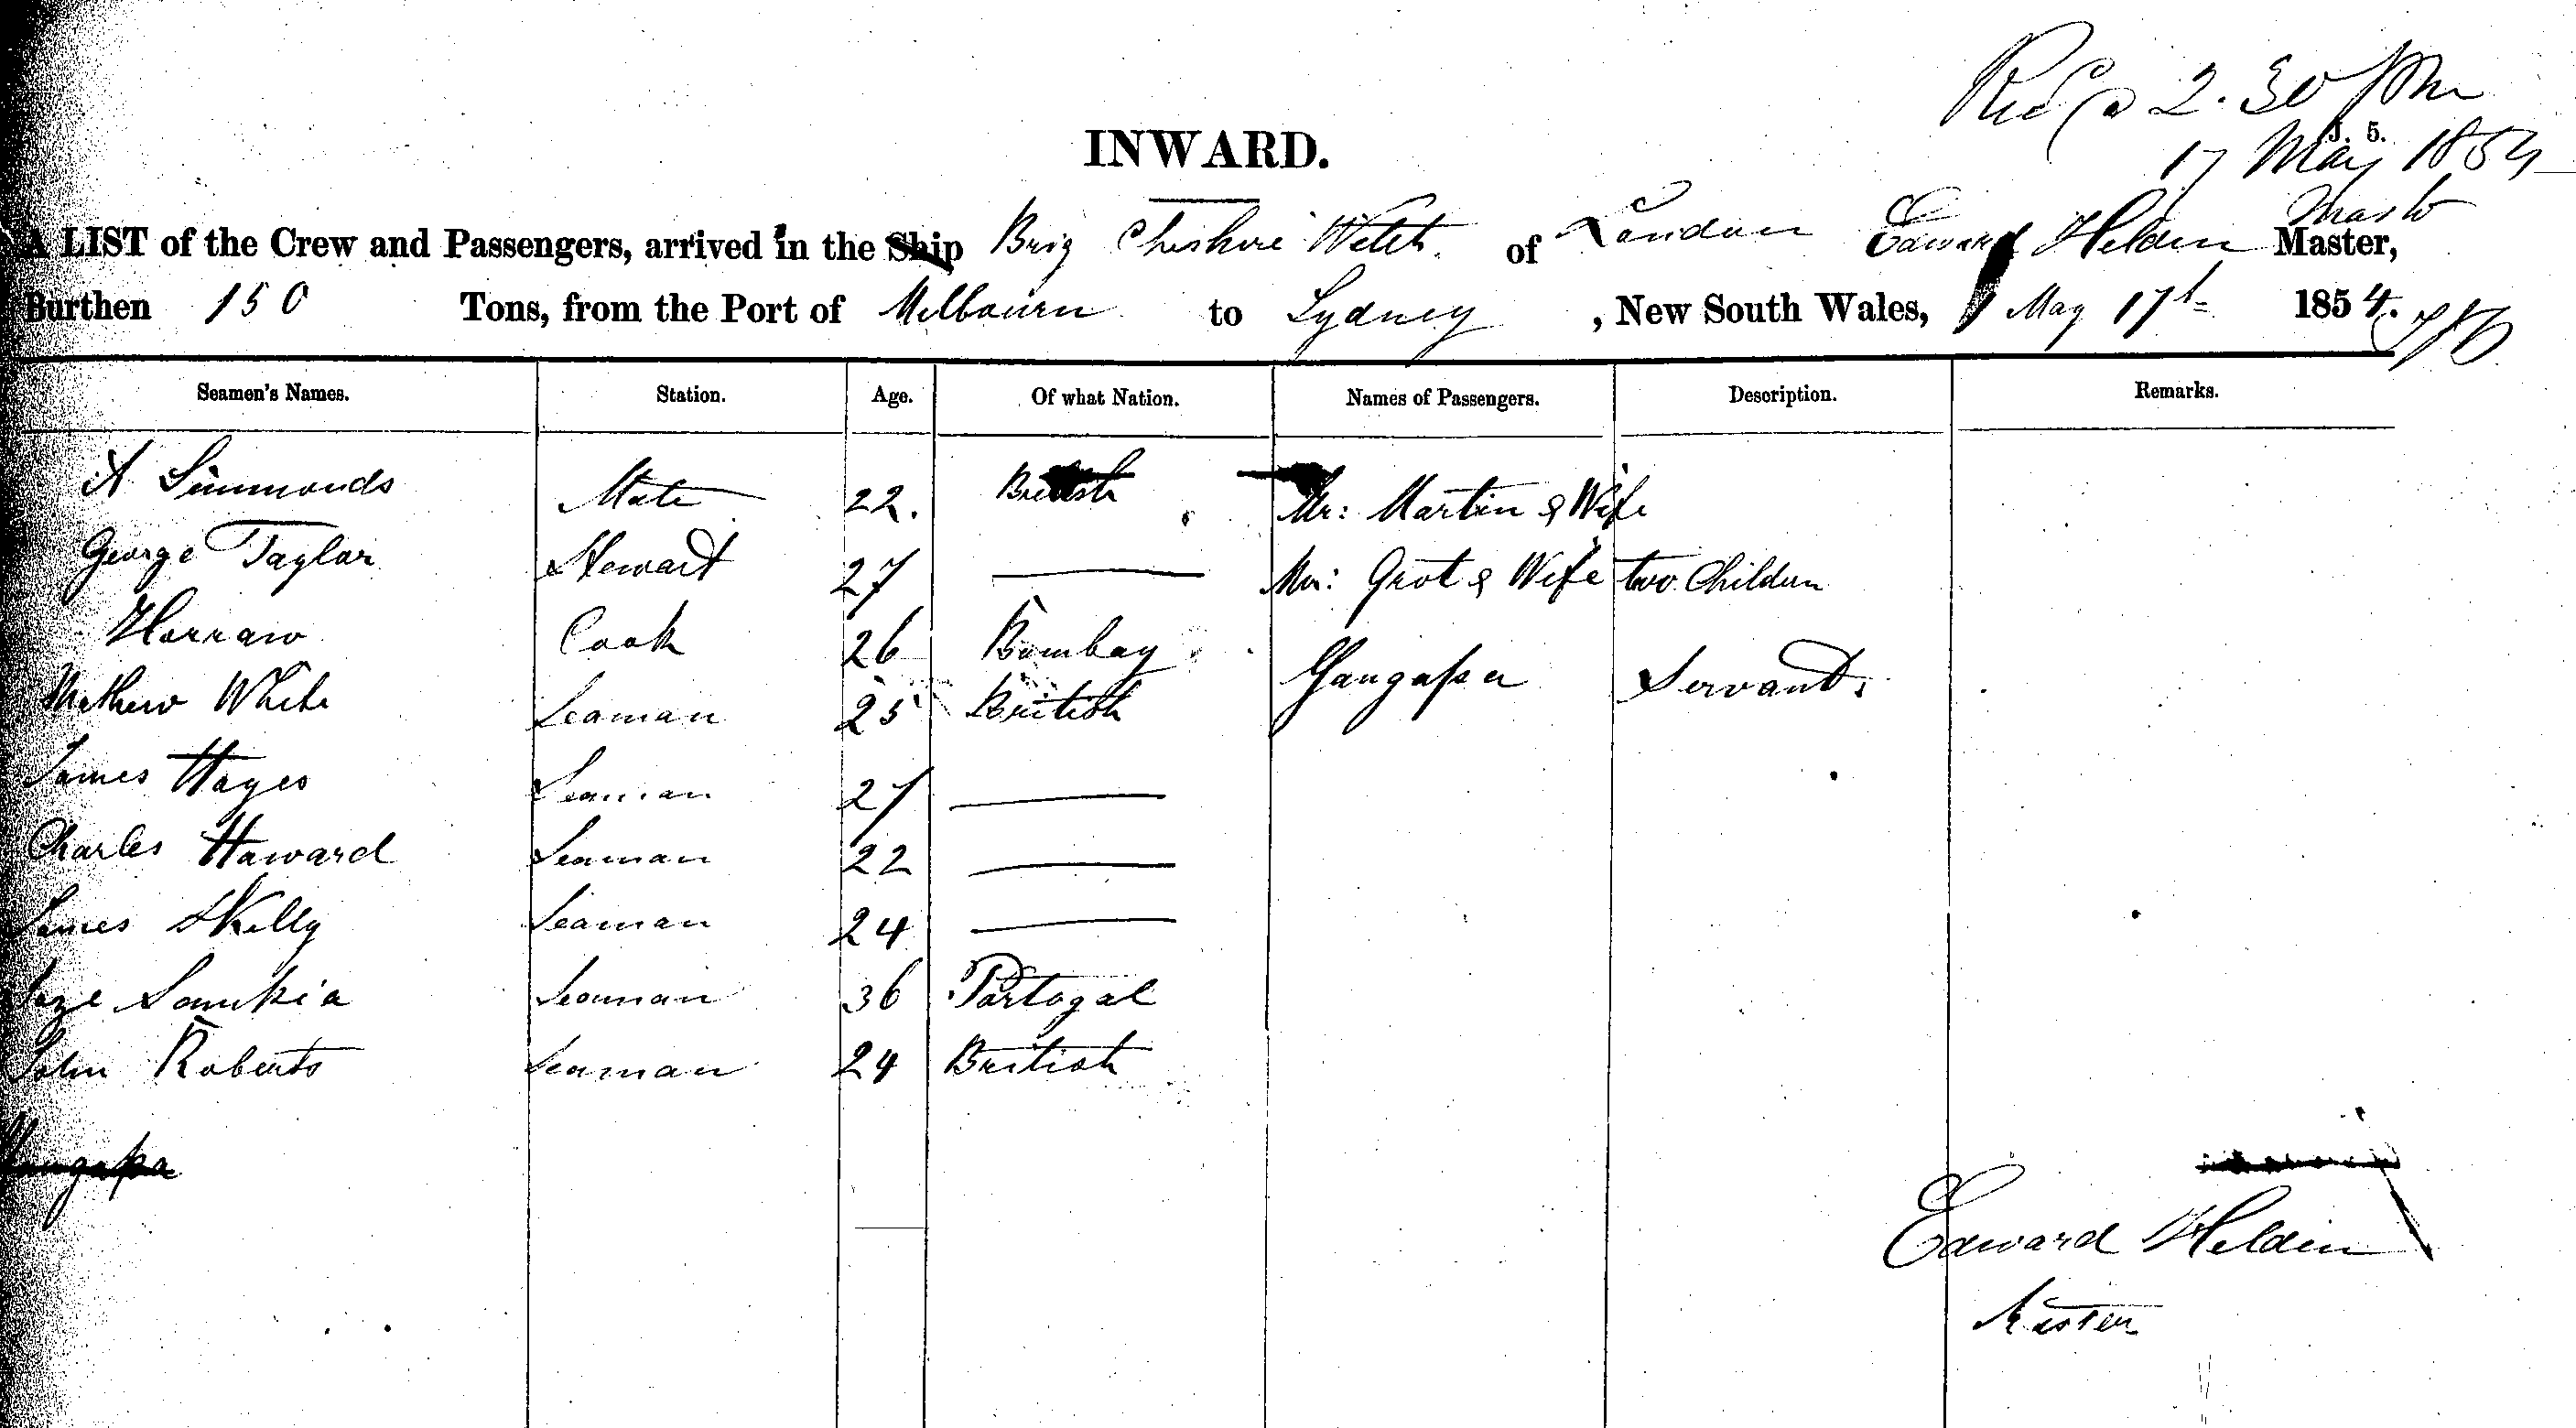 Recd @ 2.30 PM
J. 5.
17 May 1854
INWARD.
A LIST of the Crew and Passengers, arrived in the Ship Brig Cheshire Witch of London Edward Helden Master,
Burthen 150 Tons, from the Port of Melbourn to Sydney , New South Wales, May 17th 1854.
Seamen's Names. Station. Age. Of what Nation. Names of Passengers. Description. Remarks.
A Simmonds Mate 22. British Mr: Martin & Wife
George Taylor Stewart 27 Mr: Grot & Wife two Children
Horraw Cook 26 Bombay Gangapa Servant.
Mathew White Seaman 25 British
James Hayes Seaman 27
Charles Haward Seaman 22
James Skelly Seaman 24
Joze Seaman 36 Portogal
John Roberts Seaman 24 British
Gangapa
Edward Helden
Master